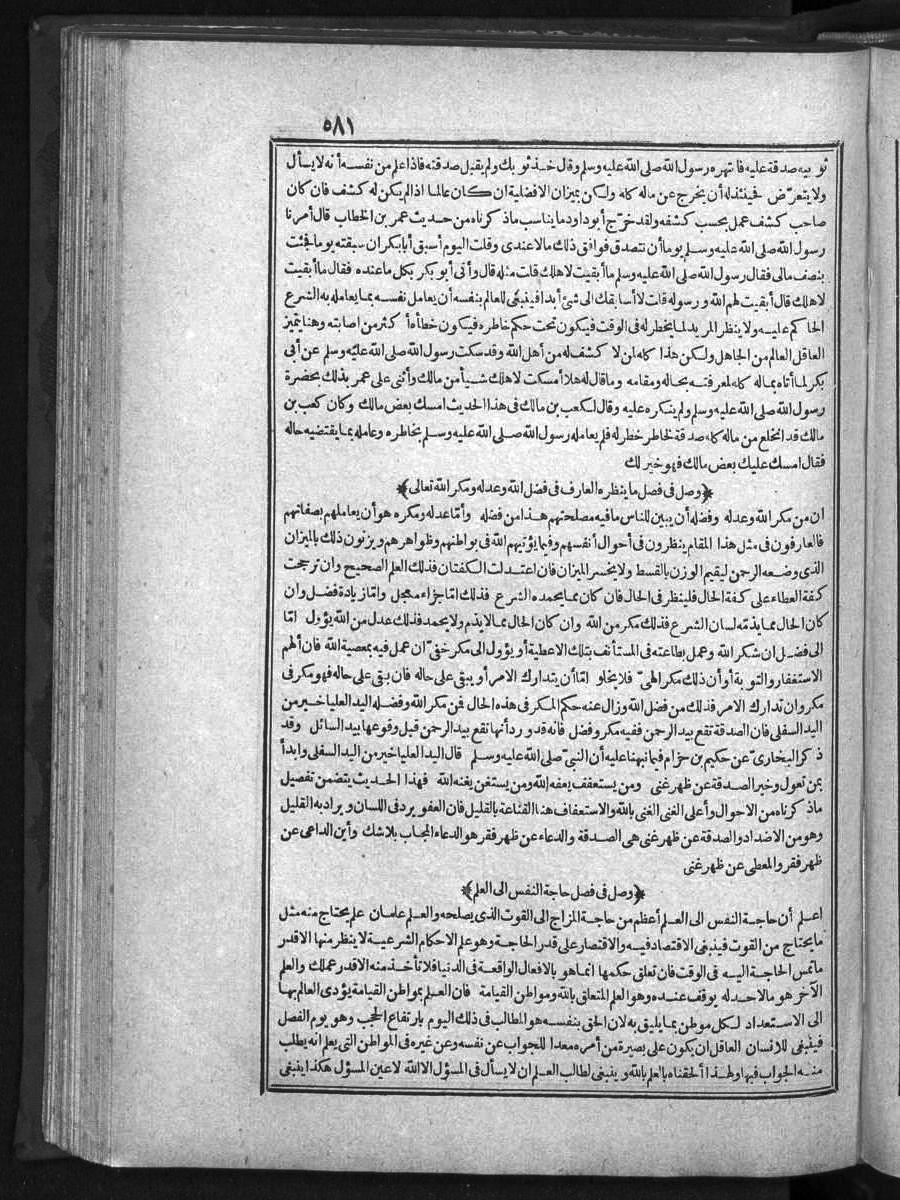 ٥٨١
ثوبيه صدقة عليه فانتهره رسول الله صلى الله عليه وسلم وقال خذ ثوبك ولم يقبل صدقته فاذا علم من نفسه أنه لا يسأل
ولا يتعرّض فحينئذ له أن يخرج عن ماله كله ولكن بميزان الافضلية ان كان عالما اذا لم يكن له كشف فان كان
صاحب كشف عمل بحسب كشفه ولقد خرّج أبو داود ما يناسب ماذكرناه من حديث عمر بن الخطاب قال أمرنا
رسول الله صلى الله عليه وسلم يوما أن نتصدق فوافق ذلك مالا عندى وقلت اليوم أسبق أبا بكر ان سبقته يوما فجئت
بنصف مالى فقال رسول الله صلى الله عليه وسلم ما أبقيت لاهلك قلت مثله قال وأتى أبو بكر بكل ما عنده فقال ما أبقيت
لاهلك قال أبقيت لهم الله ورسوله قلت لا أسابقك الى شئ أبدا فينبغى للعالم بنفسه أن يعامل نفسه بما يعامله به الشرع
الحاكم عليه ولا ينظر المريد لما يخطر له فى الوقت فيكون تحت حكم خاطره فيكون خطأه أكثر من اصابته وهنا يتميز
العاقل العالم من الجاهل ولكن هذا كله لمن لا كشف له من أهل الله وقد سكت رسول الله صلى الله عليه وسلم عن أبى
بكر لما أتاه بماله كله لمعرفته بحاله ومقامه وما قال له هلا أمسكت لاهلك شيأ من مالك وأثنى على عمر بذلك بحضرة
رسول الله صلى الله عليه وسلم ولم ينكره عليه وقال لكعب بن مالك فى هذا الحديث امسك بعض مالك وكان كعب بن
مالك قد انخلع من ماله كله صدقة لخاطر خطر له فلم يعامله رسول الله صلى الله عليه وسلم بخاطره وعامله بما يقتضيه حاله
فقال امسك عليك بعض مالك فهو خير لك
﴿وصل فى فصل ما ينظره العارف فى فضل الله وعدله ومكر الله تعالى﴾
ان من مكر الله وعدله وفضله أن يبين للناس ما فيه مصلحتهم هذا من فضله وأمّا عدله ومكره هو أن يعاملهم بصفاتهم
فالعارفون فى مثل هذا المقام ينظرون فى أحوال أنفسهم وفيما يؤتيهم الله فى بواطنهم وظواهرهم ويزنون ذلك بالميزان
الذى وضعه الرحمن ليقيم الوزن بالقسط ولا يخسر الميزان فان اعتدلت الكفتان فذلك العلم الصحيح وان ترجحت
كفة العطاء على كفة الحال فلينظر فى الحال فان كان مما يحمده الشرع فذلك امّا جزاء معجل وامّا زيادة فضل وان
كان الحال مما يذمّه لسان الشرع فذلك مكر من الله وان كان الحال مما لا يذم ولا يحمد فذلك عدل من الله يؤول امّا
الى فضل ان شكر الله وعمل بطاعته فى المستأنف بتلك الاعطية أو يؤول الى مكر خفىّ ان عمل فيه بمعصية الله فان ألهم
الاستغفار والتوبة أو أن ذلك مكر الهىّ فلا يخلو امّا أن يتدارك الامر أو يبقى على حاله فان بقى على حاله فهو مكر فى
مكر وان تدارك الامر فذلك من فضل الله وزال عنه حكم المكر فى هذه الحال فمن مكر الله وفضله اليد العليا خير من
اليد السفلى فان الصدقة تقع بيد الرحمن ففيه مكر وفضل فانه قد ورد أنها تقع بيد الرحمن قبل وقوعها بيد السائل وقد
ذكر البخارىّ عن حكيم بن حزام فيما نبهنا عليه أن النبىّ صلى الله عليه وسلم قال اليد العليا خير من اليد السفلى وابدأ
بمن تعول وخير الصدقة عن ظهر غنى ومن يستعفف يعفه الله ومن يستغن يغنه الله فهذا الحديث يتضمن تفصيل
ماذكرناه من الاحوال وأعلى الغنى الغنى بالله والاستعفاف هنا القناعة بالقليل فان العفو يرد فى اللسان ويراد به القليل
وهو من الاضداد والصدقة عن ظهر غنى هى الصدقة والدعاء عن ظهر فقر هو الدعاء المجاب بلا شك وأين الداعى عن
ظهر فقر والمعطى عن ظهر غنى
﴿وصل فى فصل حاجة النفس الى العلم﴾
اعلم أن حاجة النفس الى العلم أعظم من حاجة المزاج الى القوت الذى يصلحه والعلم علمان علم يحتاج منه مثل
ما يحتاج من القوت فينبغى الاقتصاد فيه والاقتصار على قدر الحاجة وهو علم الاحكام الشرعية لا ينظر منها الا قدر
ماتمس الحاجة اليه فى الوقت فان تعلق حكمها انما هو بالافعال الواقعة فى الدنيا فلا تأخذ منه الا قدر عملك والعلم
الآخر هو مالا حد له يوقف عنده وهو العلم المتعلق بالله ومواطن القيامة فان العلم بمواطن القيامة يؤدى العالم بها
الى الاستعداد لكل موطن بما يليق به لان الحق بنفسه هو المطالب فى ذلك اليوم بارتفاع الحجب وهو يوم الفصل
فينبغى للانسان العاقل ان يكون على بصيرة من أمره معدا للجواب عن نفسه وعن غيره فى المواطن التى يعلم انه يطلب
منه الجواب فيها ولهذا ألحقناه بالعلم بالله وينبغى لطالب العلم ان لا يسأل فى المسؤل الا الله لا عين المسؤل هكذا ينبغى